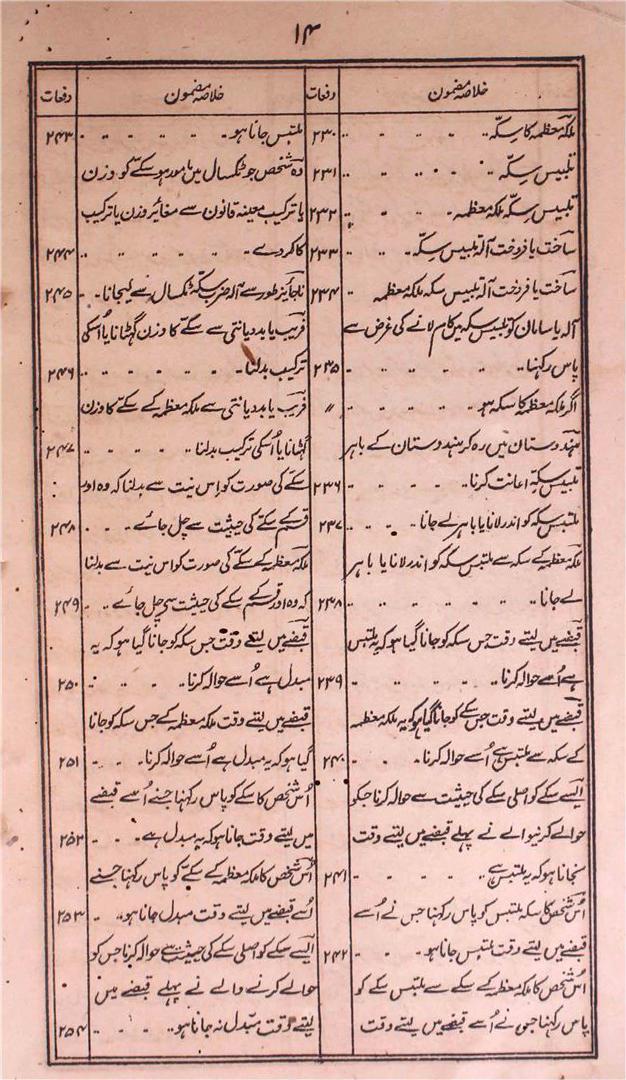 ۱۴
خلاصہ مضمون
دفعات
ملکۂ معظمہ کا سکّہ ۲۳۰
تلبیس سکّہ ۲۳۱
تلبیس سکّہ ملکہ معظمہ ۲۳۲
ساخت یا فروخت آلہ تلبیس سکّہ ۲۳۳
ساخت یا فروخت آلہ تلبیس سکہ ملکہ معظمہ ۲۳۴
آلہ یا سامان کو تلبیس سکہ میں کام لانے کی غرض سے
پاس رکہنا ۲۳۵
اگر ملکہ معظمہ کا سکہ ہو 〃
ہندوستان میں رہ کر ہندوستان کے باہر
تلبیس سکہ اعانت کرنا ۲۳۶
ملتبس سکہ کو اندر لانا یا باہر لے جانا ۲۳۷
ملکہ معظمہ کے سکہ سے ملتبس سکہ کو اندر لانا یا باہر
لے جانا ۲۳۸
قبضے میں لیتے وقت جس سکہ کو جانا گیا ہو کہ یہ ملتبس
ہے اُسے حوالہ کرنا ۲۳۹
قبضے میں لیتے وقت جس سکے کو جانا گیا ہو کہ یہ ملکہ معظمہ
کے سکہ سے ملتبس ہے اُسے حوالہ کرنا ۲۴۰
ایسے سکے کو اصلی سکے کی حیثیت سے حوالہ کرنا جسکو
حوالے کرنیوالے نے پہلے قبضے میں لیتے وقت
نجانا ہو کہ یہ ملتبس ہے ۲۴۱
اُس شخص کا سکہ ملتبس کو پاس رکہنا جس نے اُسے
قبضے میں لیتے وقت ملتبس جانا ہو ۲۴۲
اُس شخص کا ملکہ معظمہ کے سکے سے ملتبس سکے کو
پاس رکہنا جس نے اُسے قبضے میں لیتے وقت
خلاصہ مضمون
دفعات
ملتبس جانا ہو ۲۴۳
وہ شخص جو ٹکسال میں مامور ہو سکّے کو وزن
یا ترکیب معینہ قانون سے مغائر وزن یا ترکیب
کا کر دے ۲۴۴
ناجائز طور سے آلہ ضرب سکّہ ٹکسال سے لیجانا ۲۴۵
فریب یا بددیانتی سے سکّے کا وزن گہٹانا یا اُسکی
ترکیب بدلنا ۲۴۶
فریب یا بددیانتی سے ملکہ معظمہ کے سکّے کا وزن
گہٹانا یا اُسکی ترکیب بدلنا ۲۴۷
سکّے کی صورت کو اس نیت سے بدلنا کہ وہ اور
قسم کے سکّے کی حیثیت سے چل جائے ۲۴۸
ملکہ معظمہ کے سکّے کی صورت کو اس نیت سے بدلنا
کہ وہ اور قسم کے سکے کی حیثیت سے چل جائے ۲۴۹
قبضے میں لیتے وقت جس سکہ کو جانا گیا ہو کہ یہ
مبدل ہے اُسے حوالہ کرنا ۲۵۰
قبضے میں لیتے وقت ملکہ معظمہ کے جس سکہ کو جانا
گیا ہو کہ یہ مبدل ہے اُسے حوالہ کرنا ۲۵۱
اُس شخص کا سکے کو پاس رکہنا جسنے اُسے قبضے
میں لیتے وقت جانا ہو کہ یہ مبدل ہے ۲۵۲
اُس شخص کا ملکہ معظمہ کے سکّے کو پاس رکہنا جسنے
اُسے قبضے میں لیتے وقت مبدل جانا ہو ۲۵۳
ایسے سکے کو اصلی سکے کی حیثیت سے حوالہ کرنا جس کو
حوالے کرنے والے نے پہلے قبضے میں
لیتے وقت مبدل نہ جانا ہو ۲۵۴